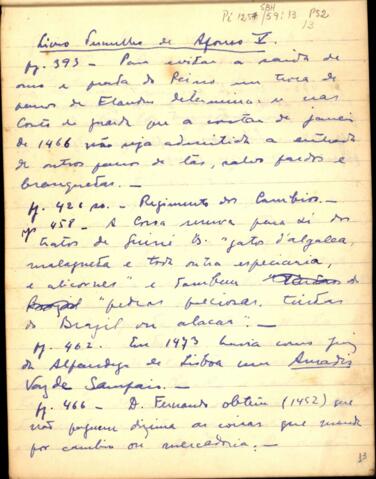 SBH
Pi 125P / 59:13 P52
13
Livro Vermelho de Afonso V.
pg. 393 – Para evitar a saída de
ouro e prata do Reino em troca de
panos de Flandres determina-se nas
Cortes da Guarda que a contar de janeiro
de 1466 não seja admitida a entrada
de outros panos de lãs, salvo pardos e
branquetas. –
pg. 426 ss. – Regimento dos Cambios. –
pg 458 – A Coroa reserva para si dos
tratos de Guiné os "gatos d'algalea,
malagueta e toda outra especiaria,
e alicornes" e tambem
"pedras preciosas, tintas
do Brazil ou alacar". –
pg. 462. Em 1473 havia como juiz
da Alfandega de Lisboa um Amadis
Vaz de Sampaio. –
pg. 466 – D. Fernando obtem (1452) que
não paguem dizima as cousas que mande
por cambio ou mercadoria. –
13